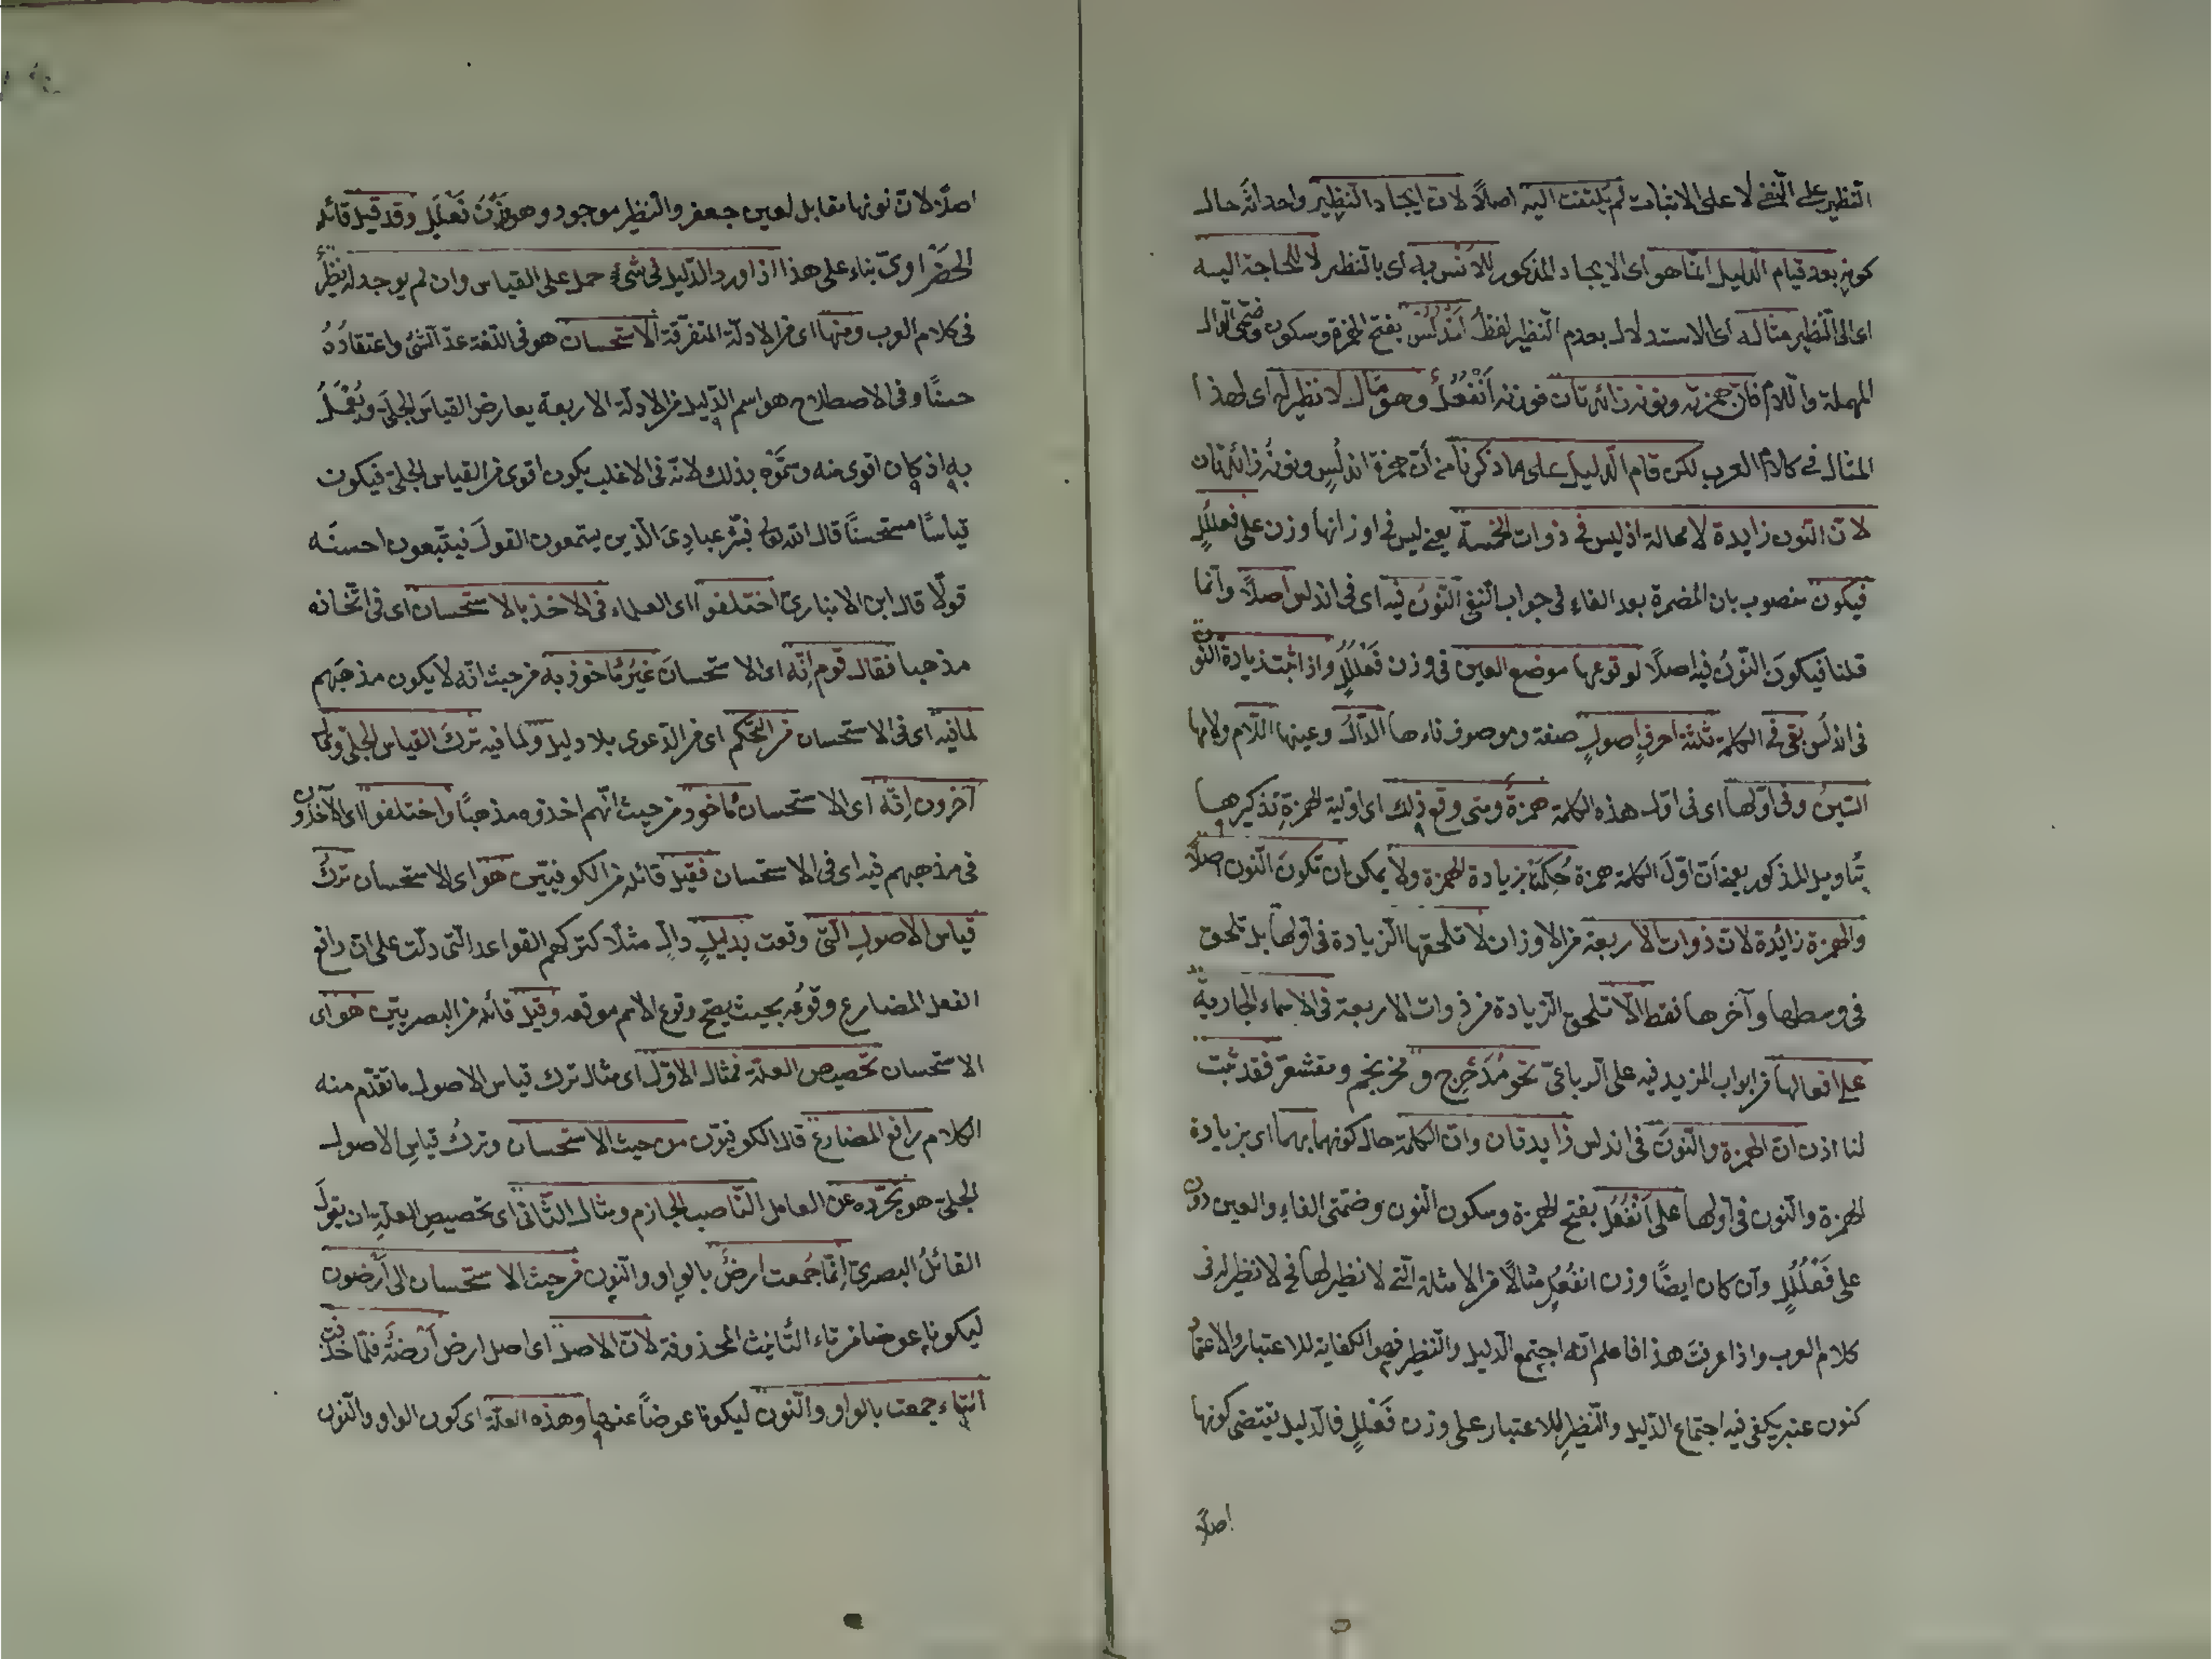 النظير على النفي لا على الاثبات لم يلتفت اليه اصلًا لان ايجاد النظير واحد انه حال
كونه بعد قيام الدليل انما هو اى الايجاد المذكور للانس به اى بالنظير لا للحاجة اليه
اى الى النظير مثاله اى الاستدلال بعدم النظير لفظ اَنْدُلُس بفتح الهمزة وسكون وضمتى الدال
المهملة واللام فان همزته ونونه زائدتان فوزنه اَنْفُعُلُ وهو مثال لا نظير له اى لهذا
المثال فى كلام العرب لكن قام الدليل على ما ذكرنا من أن همزة اندلس ونونه زائدتان
لان النون زايدة لا محالة اذ ليس فى ذوات الخمسة يعنى ليس فى اوزانها وزن على فعلُلُلٍ
فيكون منصوب بان المضمرة بعد الفاء فى جواب النفى النونُ فيه اى فى اندلس اصلًا وانما
قلنا فيكونَ النّونُ فيه اصلًا لوقوعها موضع العين فى وزن فَعْلُلُلٍ واذا ثبت زيادة النون
فى اندلس بقى فى الكلمة ثلثة احرفٍ اصولٍ صفة وموصوف فاءها الدّالُ وعينها اللّام ولامها
السّينُ وفى اوّلها اى فى اول هذه الكلمة همزةٌ ومتى وقع ذلك اى اولية الهمزةِ تذكيرها
بتأويل المذكور يعنى اَنّ اوّلَ الكلمة همزة حُكِمَ بزيادة الهمزة ولا يمكن ان تكونَ النون اصلًا
والهمزة زائدة لان ذوات الاربعة من الاوزان لا تلحقها الزيادة فى اولها بل تلحق
فى وسطها وآخرها فقط الّا تلحق الزيادة من ذوات الاربعة فى الاسماء الجارية
على افعالها من ابواب المزيد فيه على الرباعىّ نحو مُدَحْرِج و محرنجم ومقشعرّ فقد ثبت
لنا اذن ان الهمزة والنّونَ فى اندلس زايدتان وان الكلمة حال كونهما بهما اى بزيادة
الهمزة والنون فى اولها على اَنْفُعُل بفتح الهمزة وسكون النون وضمّتى الفاءِ والعين دون
على فَعْلُلُلٍ وان كان ايضًا وزن انفُعُل مثالًا من الامثلة التى لا نظير لها فى لا نظير له فى
كلام العرب واذا عرفت هذا فاعلم انه اجتمع الدليل والنظير فهو الكفاية للاعتبار والاعتماد
كنون عنبر يكفى فيه اجتماع الدليل والنّظيرِ للاعتبار على وزن فَعْلَلٍ فالدليل يقتضى كونها
اصلًا
اصلًا لانّ نونها مقابل لعين جعفر والنظير موجود وهو وَزْنُ فَعْلَلٍ وقد قيل قائله
الحضراوىّ بناء على هذا اذا ورد الدّليل فى شئٍ حمل على القياس وان لم يوجد له نظيرٌ
فى كلام العرب ومنها اى من الادلّة المتفرّقة الاستحسان هو فى اللغة عدّ الشئ واعتقادُهُ
حسنًا وفى الاصطلاح هو اسم الدّليل من الادلّة الاربعة يعارض القياسَ الجلىَّ ويُعْمَلُ
به اذ كان اقوى منه وسمّوْه بذلك لانّه فى الاغلب يكون اقوى من القياس الجلىّ فيكون
قياسًا مستحسنًا قال الله تع فبشّر عبادِىَ الّذين يستمعون القولَ فيتّبعون احسنَه
قولًا قال ابن الانبارىّ اختلفوا اى العلماء فى الاخذ بالاستحسان اى فى اتخاذه
مذهبا فقال قوم اِنّه اى الاستحسانَ غيرُ مأخوذ به من حيث انّه لا يكون مذهبَهم
لما فيه اى فى الاستحسان من التحكم اى من الدّعوى بلا دليل ولما فيه تركَ القياس الجلىّ وقال
آخرون اِنّه اى الاستحسان مأخوذ من حيث انّهم اخذوه مذهبًا واختلفوا اى الآخذون
فى مذهبهم فيه اى فى الاستحسان فقيل قائله من الكوفيين هو اى الاستحسان تركُ
قياس الاصولِ الّتى وقعت بدليلٍ دالٍّ مثلا كتركهم القواعد الّتى دلّت على ان رافع
الفعل المضارع وقوعُه بحيث يصحّ وقوع الاسم موقعه وقيل قائله من البصريّين هو اى
الاستحسان تخصيص العلّة فمثال الاوّل اى مثال ترك قياس الاصول ما تقدّم منه
الكلام رافع المضارع قال الكوفيّون من حيث الاستحسان وتركُ قياسِ الاصول
الجلىّ هو تجرّده عن العامل النّاصب الجازم ومثال الثّانى اى تخصيصِ العلّةِ ان يقولَ
القائلُ البصرىّ اِنّما جُمعت ارضٌ بالواو والنون من حيث الاستحسان الى اَرَضون
ليكونا عوضا من تاء التّأنيث المحذوفة لانّ الاصل اى اصل ارض اَرْضَةٌ فلمّا حُذفت
التّاء جمعت بالواو والنّون ليكونا عوضاً عنها وهذه العلّة اى كون الواو والنون